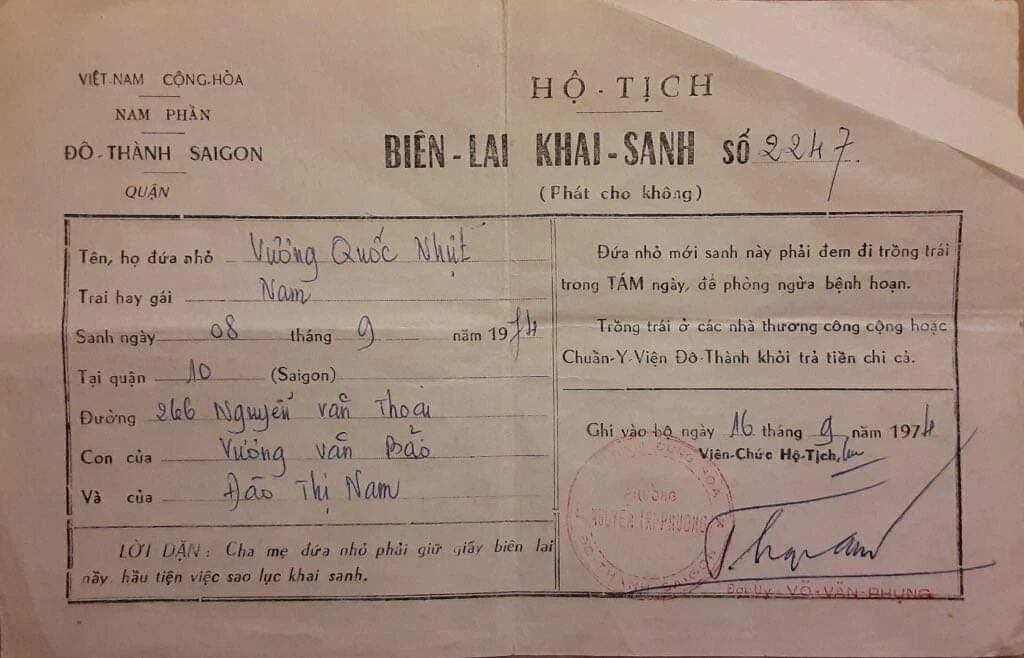 VIỆT-NAM CỘNG-HÒA
NAM PHẦN
ĐÔ-THÀNH SAIGON
QUẬN
HỘ-TỊCH
BIÊN-LAI KHAI-SANH số 2247.
(Phát cho không)
Tên, họ đứa nhỏ Vương Quốc Nhựt
Trai hay gái Nam
Sanh ngày 08 tháng 9 năm 1974
Tại quận 10 (Saigon)
Đường 266 Nguyễn Văn Thoại
Con của Vương Văn Bảo
Và của Đào Thị Nam
LỜI DẶN: Cha mẹ đứa nhỏ phải giữ giấy biên lai
nầy hầu tiện việc sao lục khai sanh.
Đứa nhỏ mới sanh này phải đem đi trồng trái
trong TÁM ngày, để phòng ngừa bệnh hoạn.
Trồng trái ở các nhà thương công cộng hoặc
Chuẩn-Y-Viện Đô-Thành khỏi trả tiền chi cả.
Ghi vào bộ ngày 16 tháng 9 năm 1974
Viên-Chức Hộ-Tịch,
PHƯỜNG
NGUYỄN TRI-PHƯƠNG
Đại-Úy VÕ-VĂN-PHỤNG